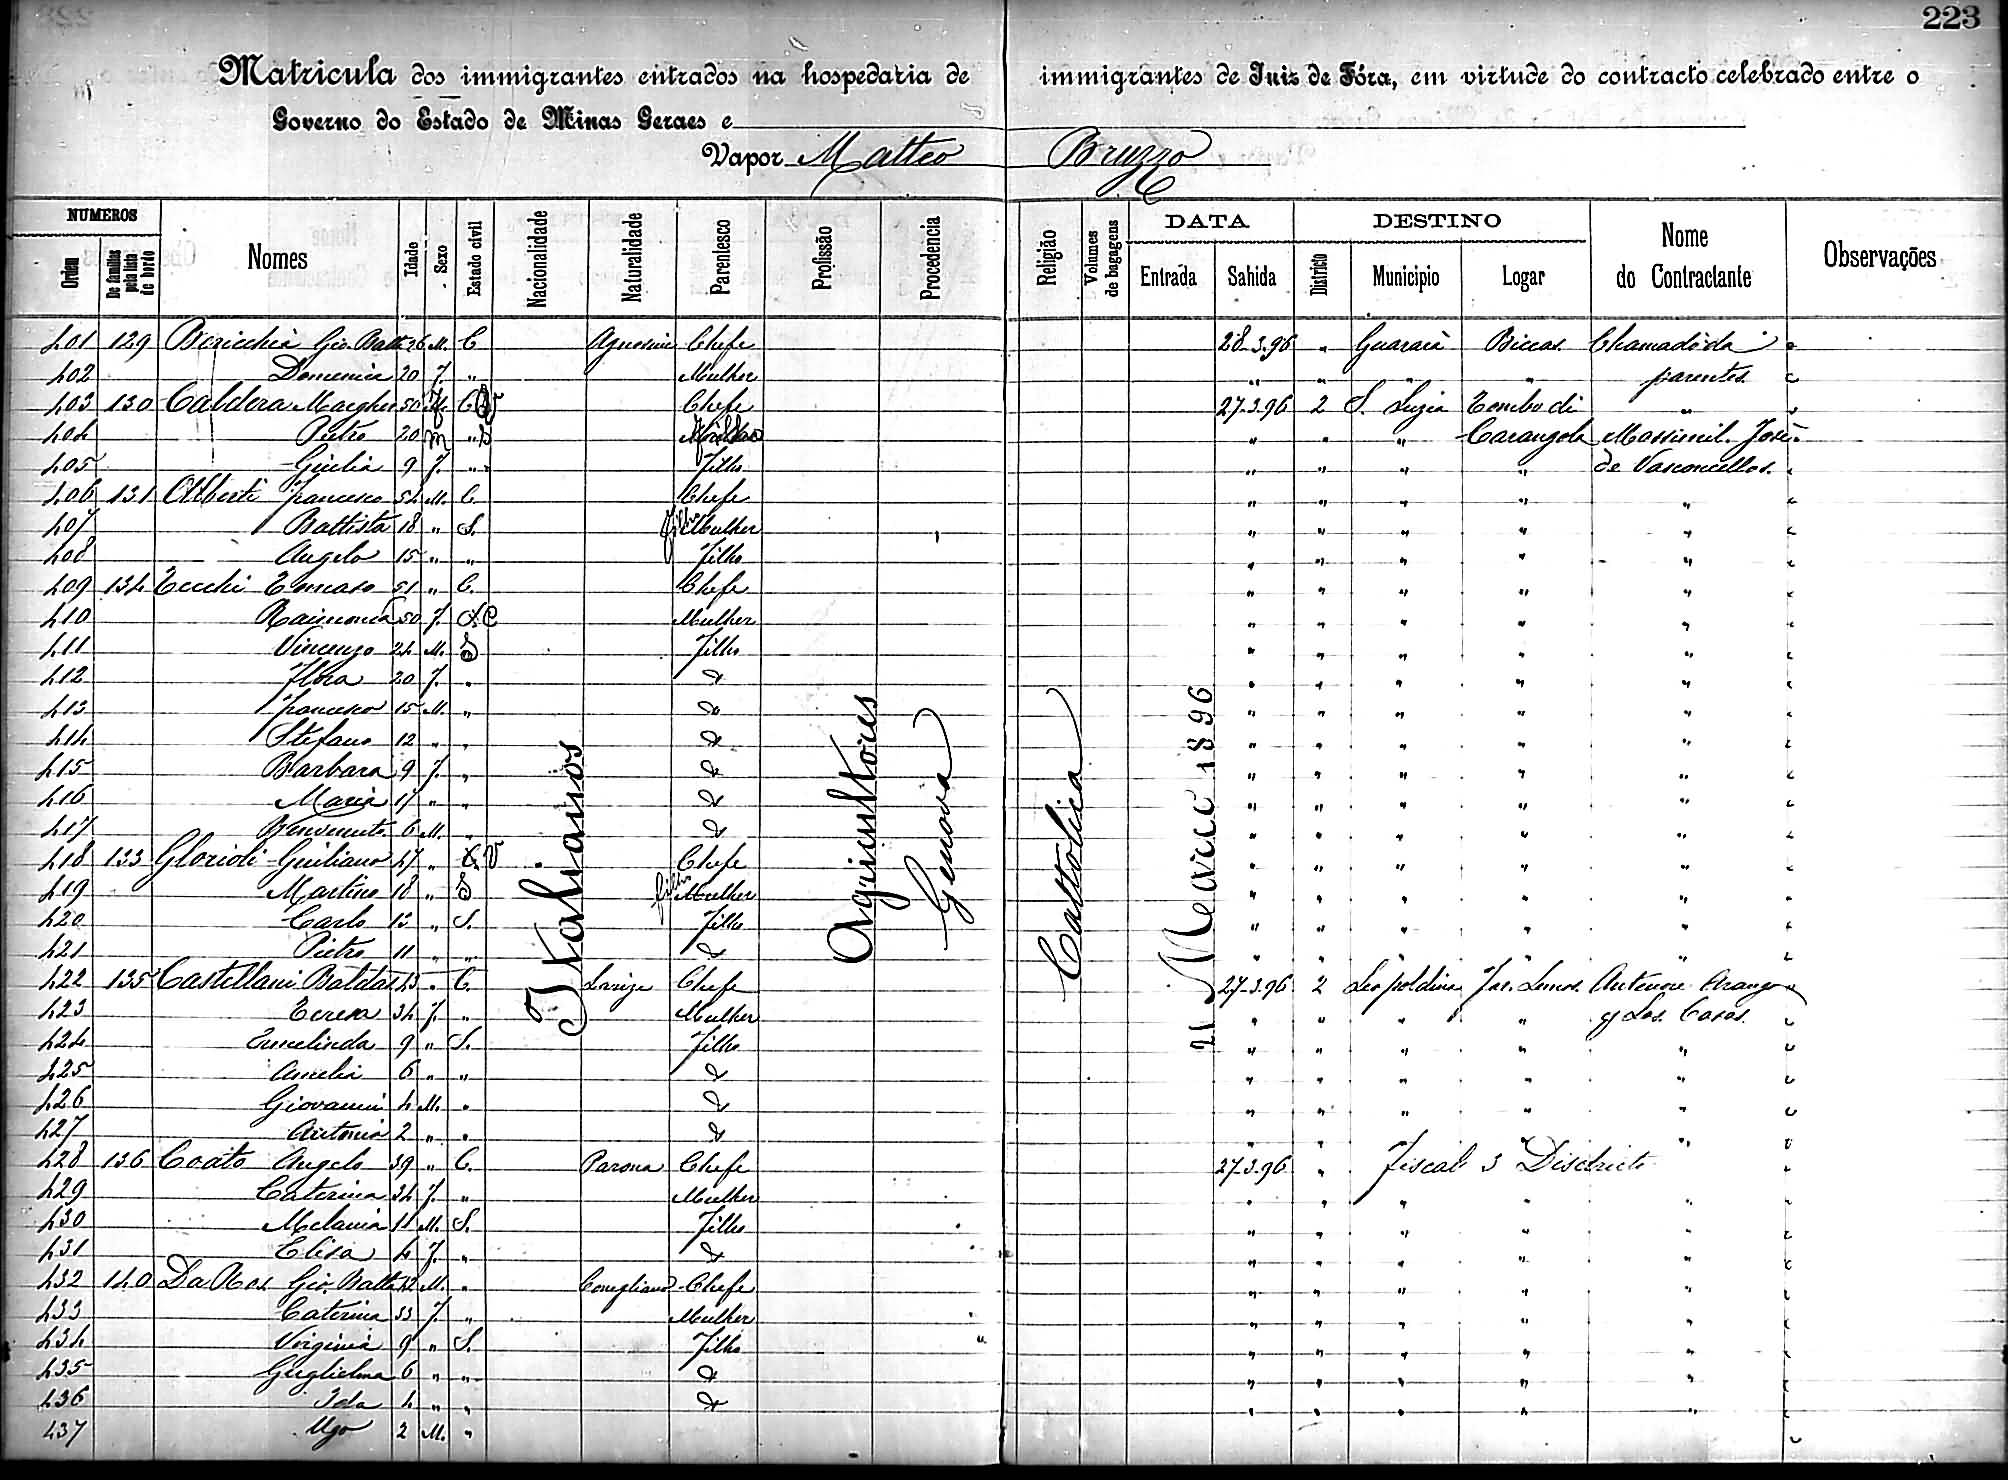 223
Matricula dos immigrantes entrados na hospedaria de immigrantes de Juiz de Fóra, em virtude do contracto celebrado entre o
Governo do Estado de Minas Geraes e
Vapor Matteo Bruzzo
NUMEROS DATA DESTINO
Ordem De familias pela lista de bordo Nomes Idade Sexo Estado civil Nacionalidade Naturalidade Parentesco Profissão Procedencia Religião Volumes de bagagens Entrada Sahida Districto Municipio Logar Nome do Contractante Observações
Italianos Agricultores Genova Cattolica 21 Março 1896
401 129 Gio. Batt 26 M. C Chefe 28-3-96 " Guarará Biccas Chamado da
402 Domenica 20 F. " Mulher " " " " parentes
403 130 Caldera 50 F. V Chefe 27-3-96 2 S. Luzia Tombo di "
404 Pietro 20 m S Filho " " " Carangola Massimil. José
405 Giulia 9 F. " Filho " " " " de Vasconcellos.
406 131 Alberti Francesco 54 M. C. Chefe " " " " "
407 Battista 18 " S. Filho Mulher " " " " "
408 Angelo 15 " " Filho " " " " "
409 134 Tecchi Tomaso 51 " C. Chefe " " " " "
410 50 F. C Mulher " " " " "
411 Vincenzo 24 M. S Filho " " " " "
412 Flora 20 F. " " " " " "
413 Francesco 15 M. " " " " " "
414 Stefano 12 " " " " " " "
415 Barbara 9 F. " " " " " "
416 Maria 17 " " " " " " "
417 Benvenuto 6 M. " " " " " "
418 133 Glorioli Giuliano 47 " V Chefe " " " " "
419 Martino 18 " S filho Mulher " " " " "
420 Carlo 13 " S. Filho " " " " "
421 Pietro 11 " " " " " " "
422 135 Castellani Baldas 43 " C. Chefe 27-3-96 2 Leopoldina Antenore Araugo
423 Teresa 34 F. " Mulher " " " " g Las Casas
424 9 " S. Filho " " " " "
425 Amelia 6 " " " " " " "
426 Giovanni 4 M. " " " " " "
427 Antonia 2 " " " " " " "
428 136 Coato Angelo 39 " C. Parona Chefe 27-3-96 " Fiscal 3 Districto
429 Caterina 34 F. " Mulher " " " " "
430 Melania 11 M. S. Filho " " " " "
431 Elisa 4 F. " " " " " "
432 140 Da Ros Gio. Batta 42 M. " Conegliano Chefe " " " " "
433 Caterina 33 F. " Mulher " " " " "
434 Virginia 9 " S. Filho " " " " "
435 Guglielma 6 " " " " " " "
436 Ida 4 " " " " " " "
437 Ugo 2 M. "